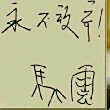 永不放弃
馬雲